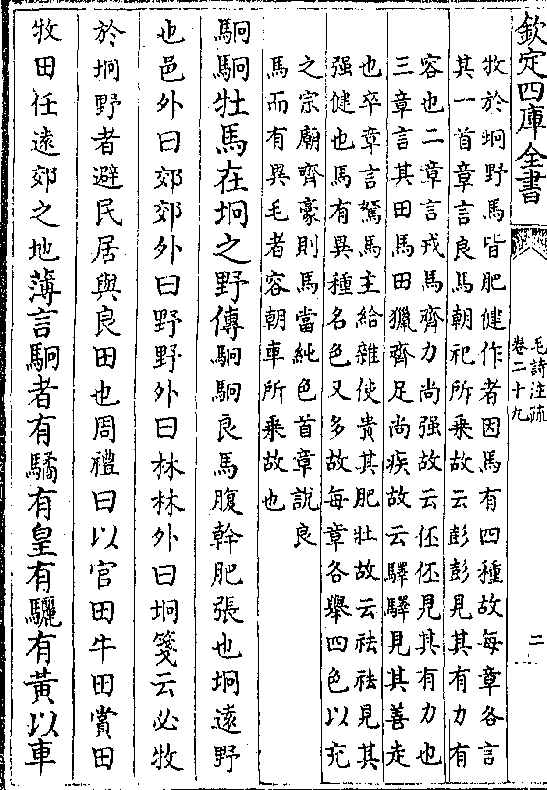 欽定四庫全書
毛詩注疏
卷二十九
二
牧於坰野馬皆肥健作者因馬有四種故每章各言
其一首章言良馬朝祀所乗故云彭彭見其有力有
容也二章言戎馬齊力尚强故云伾伾見其有力也
三章言其田馬田獵齊足尚疾故云驛驛見其善走
也卒章言駑馬主給雜使貴其肥壯故云祛祛見其
强健也馬有異種名色又多故每章各舉四色以充
之宗廟齊豪則馬當純色首章說良
馬而有異毛者容朝車所乗故也
駉駉牡馬在坰之野傳駉駉良馬腹幹肥張也坰逺野
也邑外曰郊郊外曰野野外曰林林外曰坰箋云必牧
於坰野者避民居與良田也周禮曰以官田牛田賞田
牧田任逺郊之地薄言駉者有驈有皇有驪有黃以車